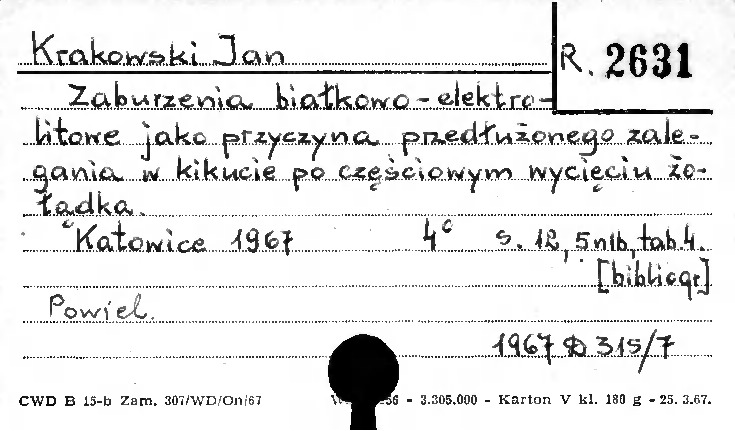 Krakowski Jan
R. 2631
Zaburzenia białkowo-elektro-
litowe jako przyczyna przedłużonego zale-
gania w kikucie po częściowym wycięciu żo-
łądka.
Katowice 1967 4° s. 12, 5 nlb, tab. 4.
[bibliogr]
Powiel.
1967 D 315/7
CWD B 15-b Zam. 307/WD/On/67 56 - 3.305.000 - Karton V kl. 180 g - 25. 3.67.